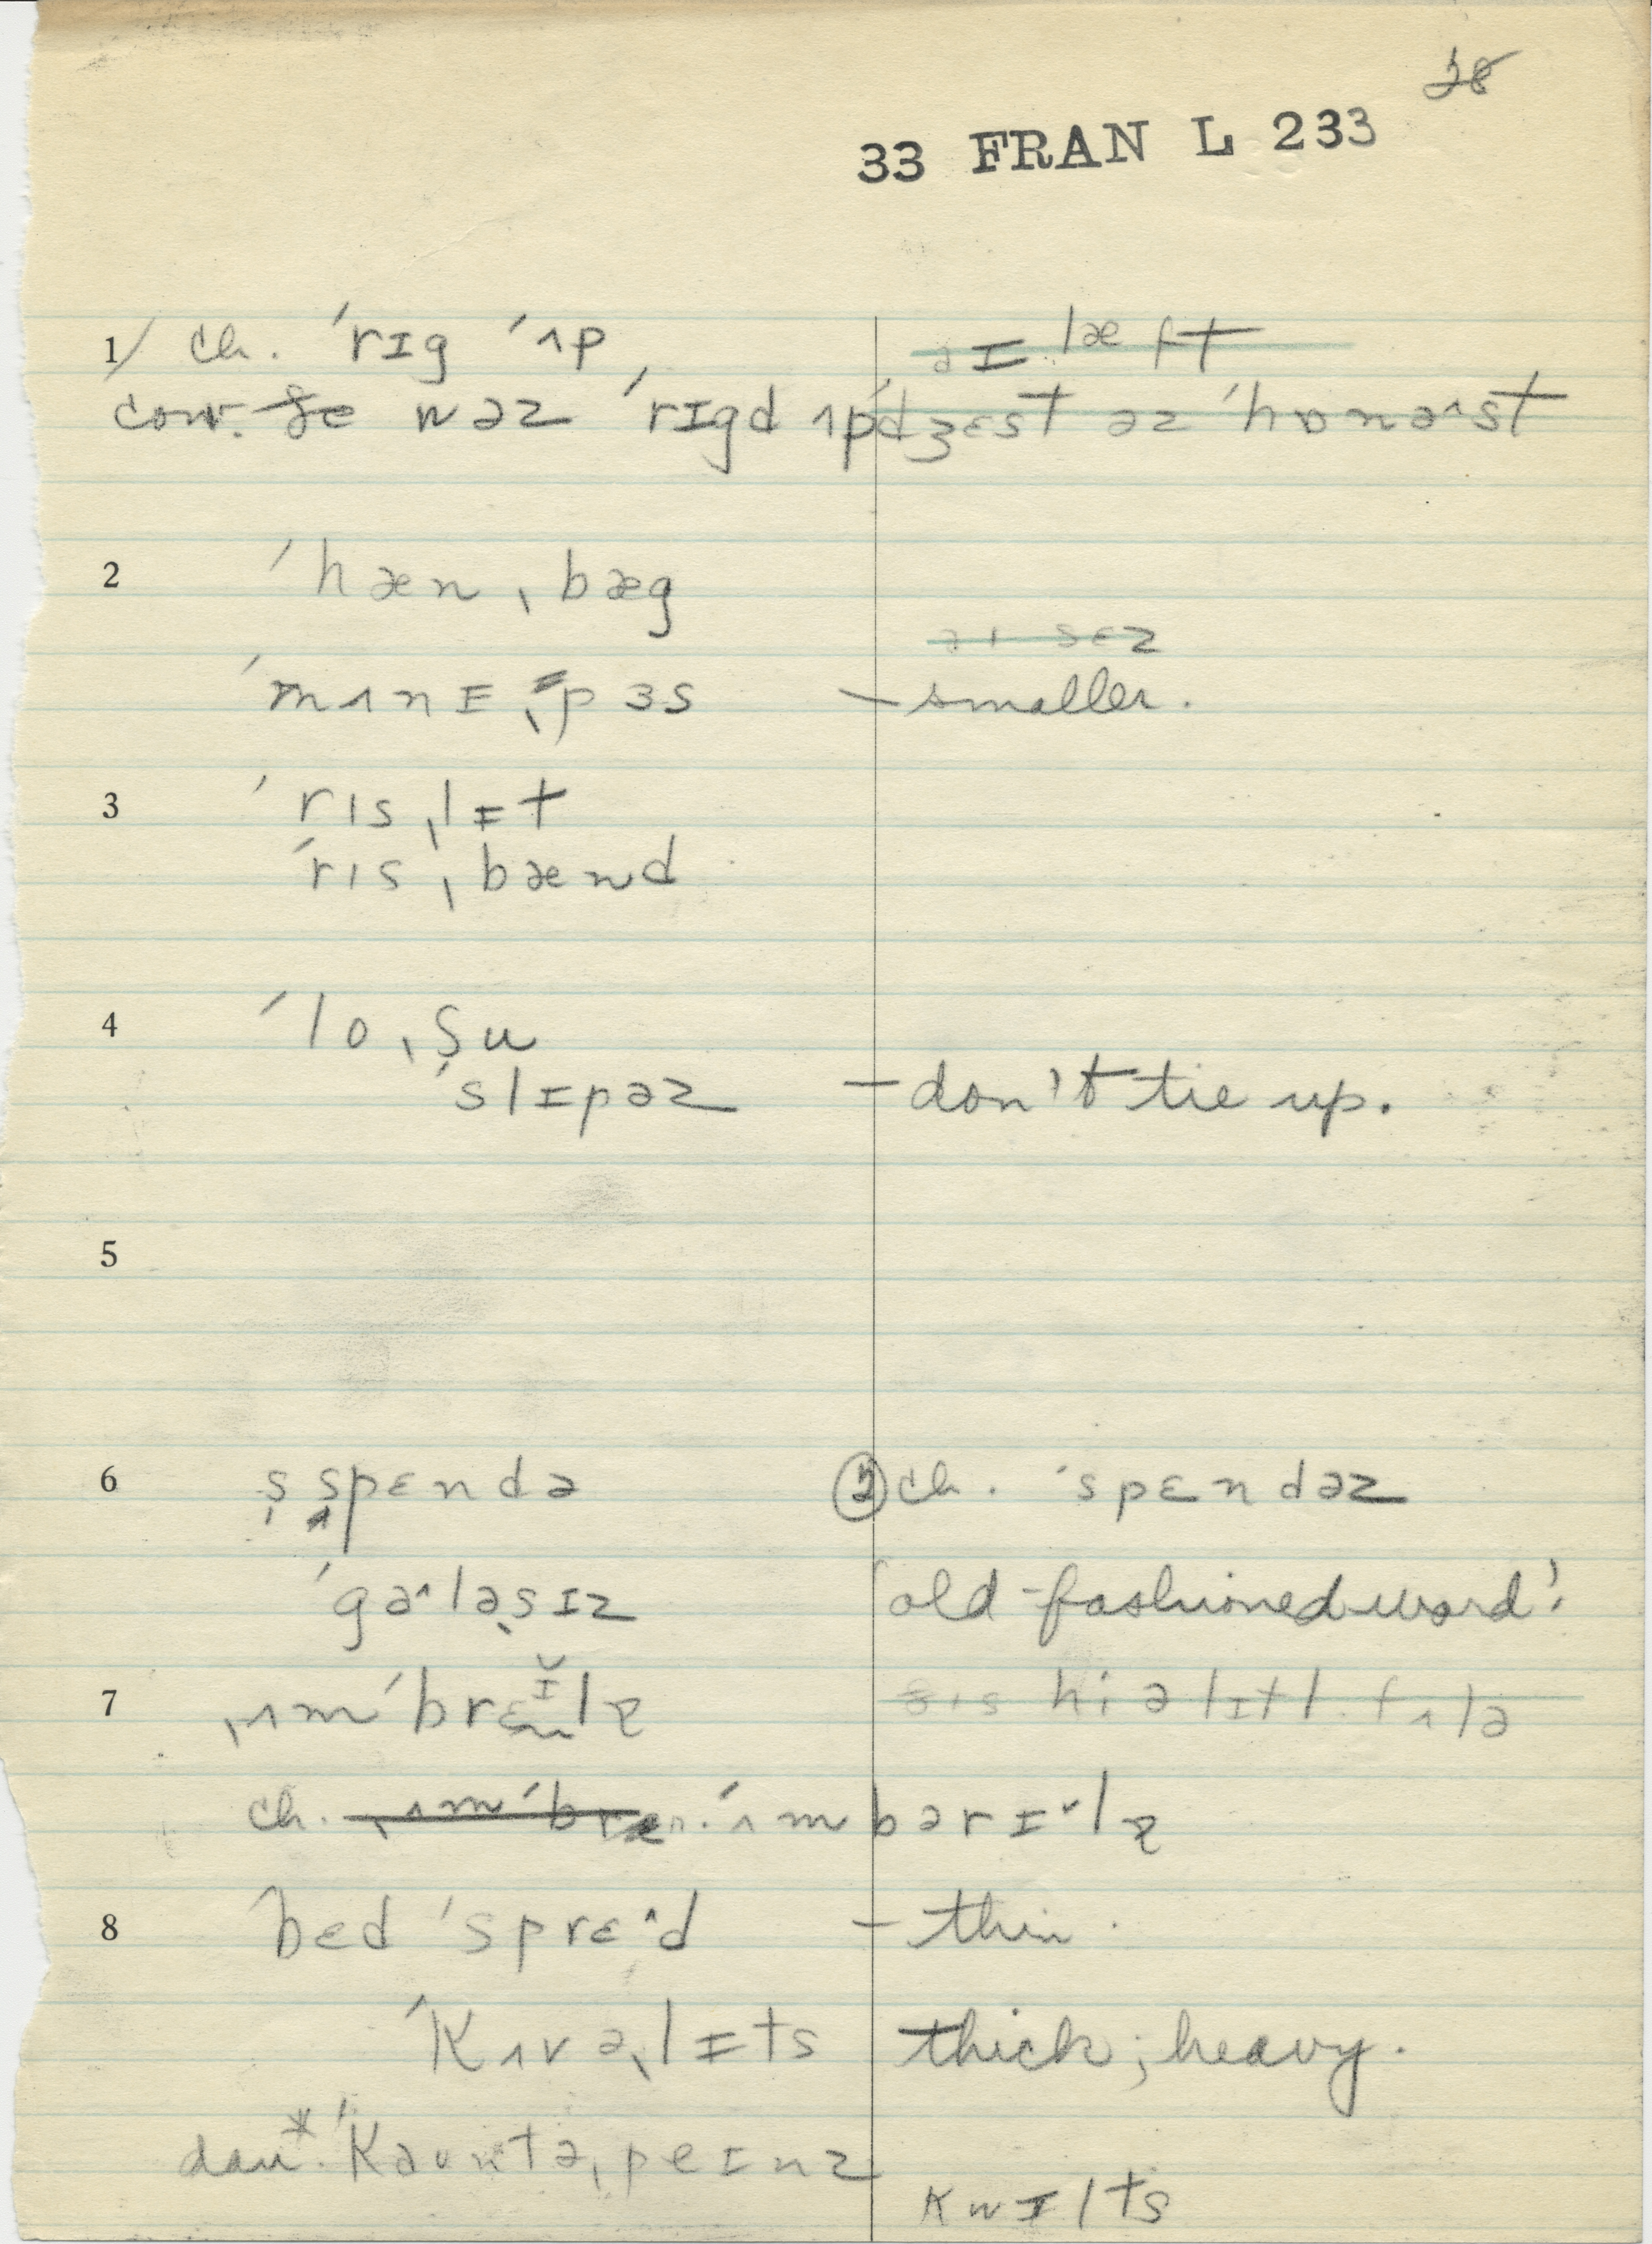 28
33 FRAN L 233
1/ ch. ˈrɪg ˈʌp
conv. wəz ˈrɪgd ʌp ˈdʒɛst əz ˈhɒnəst
2 ˈhæn ˌbæg
ˈmʌnɪ ˌpɜs – smaller.
3 ˈrɪs ˌlɪt
ˈrɪs ˌbænd
4 ˈlo ˌʃu
ˈslɪpəz – don't tie up.
5
6 s̩ˌspɛndə ② ch. ˈspɛndəz
ˈgaˆləsɪz 'old-fashioned word'
7 ˌʌmˈbrɛlɐ
ch. ˈʌmbərɪˇlɐ
8 bɛd ˈsprɛˆd – thin.
ˈkʌvəˌlɪts thick; heavy.
dau.* ˈkaʊntəˌpeɪnz
kwɪlts